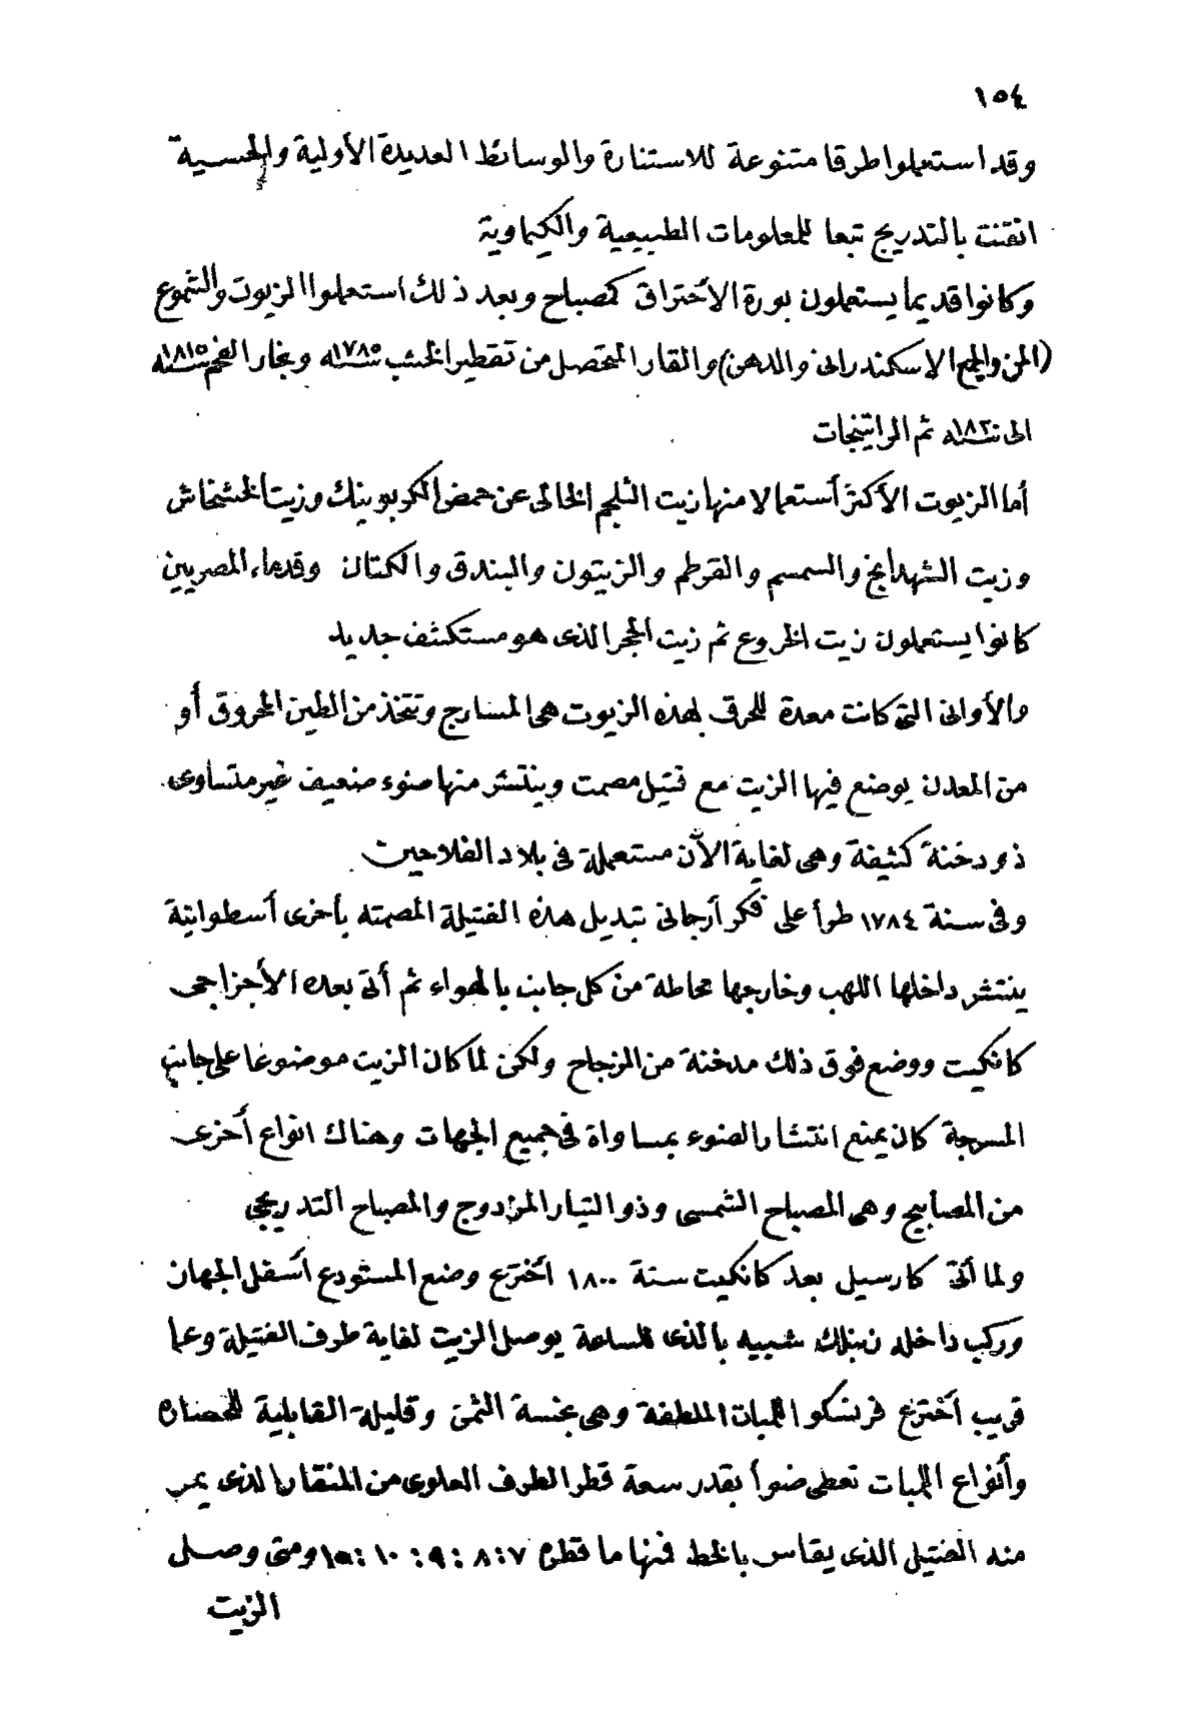 ١٥٤
وقد استعملوا طرقا متنوعة للاستنارة والوسائط العديدة الأولية والخسيسة
اتقنت بالتدريج تبعا للمعلومات الطبيعية والكيماوية
وكانوا قديما يستعملون بورة الأحتراق كمصباح وبعد ذلك استعملوا الزيوت والشموع
(المن والجمع الاسكندرانى والدهن) والقار المتحصل من تقطير الخشب سنة ١٧٨٥ وبخار الفحم سنة ١٨١٥
الى سنة ١٨٢٠ ثم الراتينجات
أما الزيوت الأكثر أستعمالا منها زيت الثلجم الخالى عن حمض الكربونيك وزيت الخشخاش
وزيت الشهدانج والسمسم والقرطم والزيتون والبندق والكتان وقدماء المصريين
كانوا يستعملون زيت الخروع ثم زيت الحجر الذى هو مستكشف جديد
والأوانى التى كانت معدة للحرق لهذه الزيوت هى المسارج وتتخذ من الطين المحروق أو
من المعدن يوضع فيها الزيت مع فتيل مصمت وينتشر منها ضوء ضعيف غير متساوى
ذو دخنة كثيفة وهى لغاية الآن مستعملة فى بلاد الفلاحين
وفى سنة ١٧٨٤ طرأ على فكر أرجانى تبديل هذه الفتيلة المصمته بأخرى أسطوانية
ينتشر داخلها اللهب وخارجها محاطة من كل جانب بالهواء ثم أتى بعده الأجزاجى
كانكيت ووضع فوق ذلك مدخنة من الزجاج ولكن لما كان الزيت موضوعا على جانب
المسرجة كان يمنع انتشار الضوء بمساواة فى جميع الجهات وهناك انواع أخرى
من المصابيح وهى المصباح الشمسى وذو التيار المزدوج والمصباح التدريجى
ولما أتى كارسيل بعد كانكيت سنة ١٨٠٠ أخترع وضع المستودع أسفل الجهان
وركب داخله زنبلك شبيه بالذى للساعة يوصل الزيت لغاية طرف الفتيلة وعما
قريب أخترع فرنسكو اللمبات الملطفة وهى بخسة الثمن وقليلة القابلية للحضاره
وأنواع اللمبات تعطى ضوأ بقدر سعة قطر الطرف العلوى من المنقار الذى يمر
منه الفتيل الذى يقاس بالخط فمنها ما قطره ٧ : ٨ : ٩ : ١٠ : ١٥ ومتى وصل
الزيت